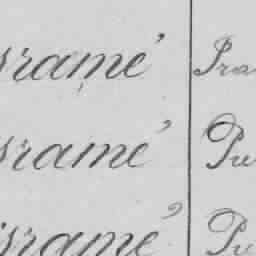 srame' Pra
srame' Pu
srame' Pu